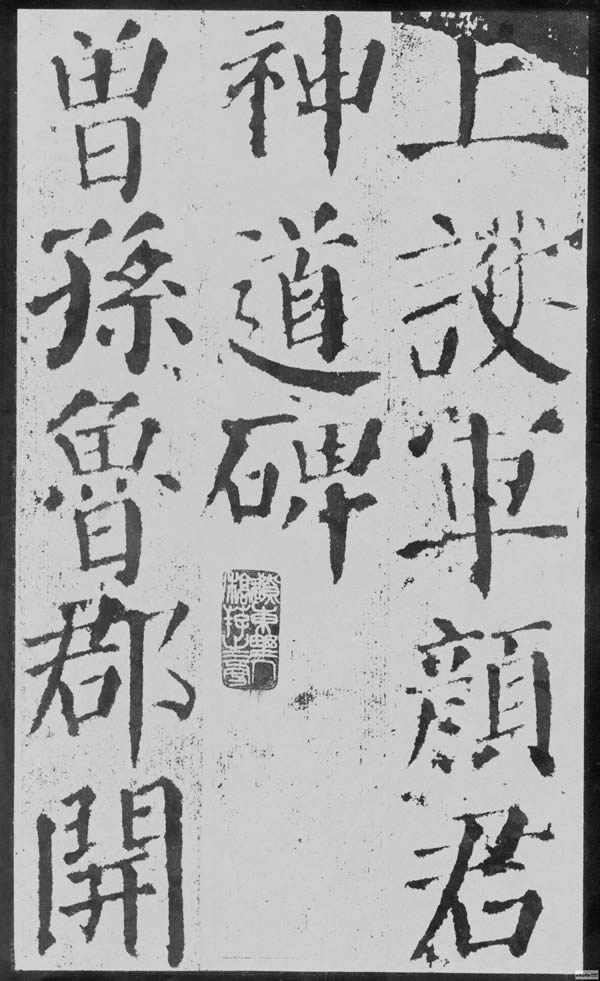 上護軍顏君
神道碑
曾孫魯郡開